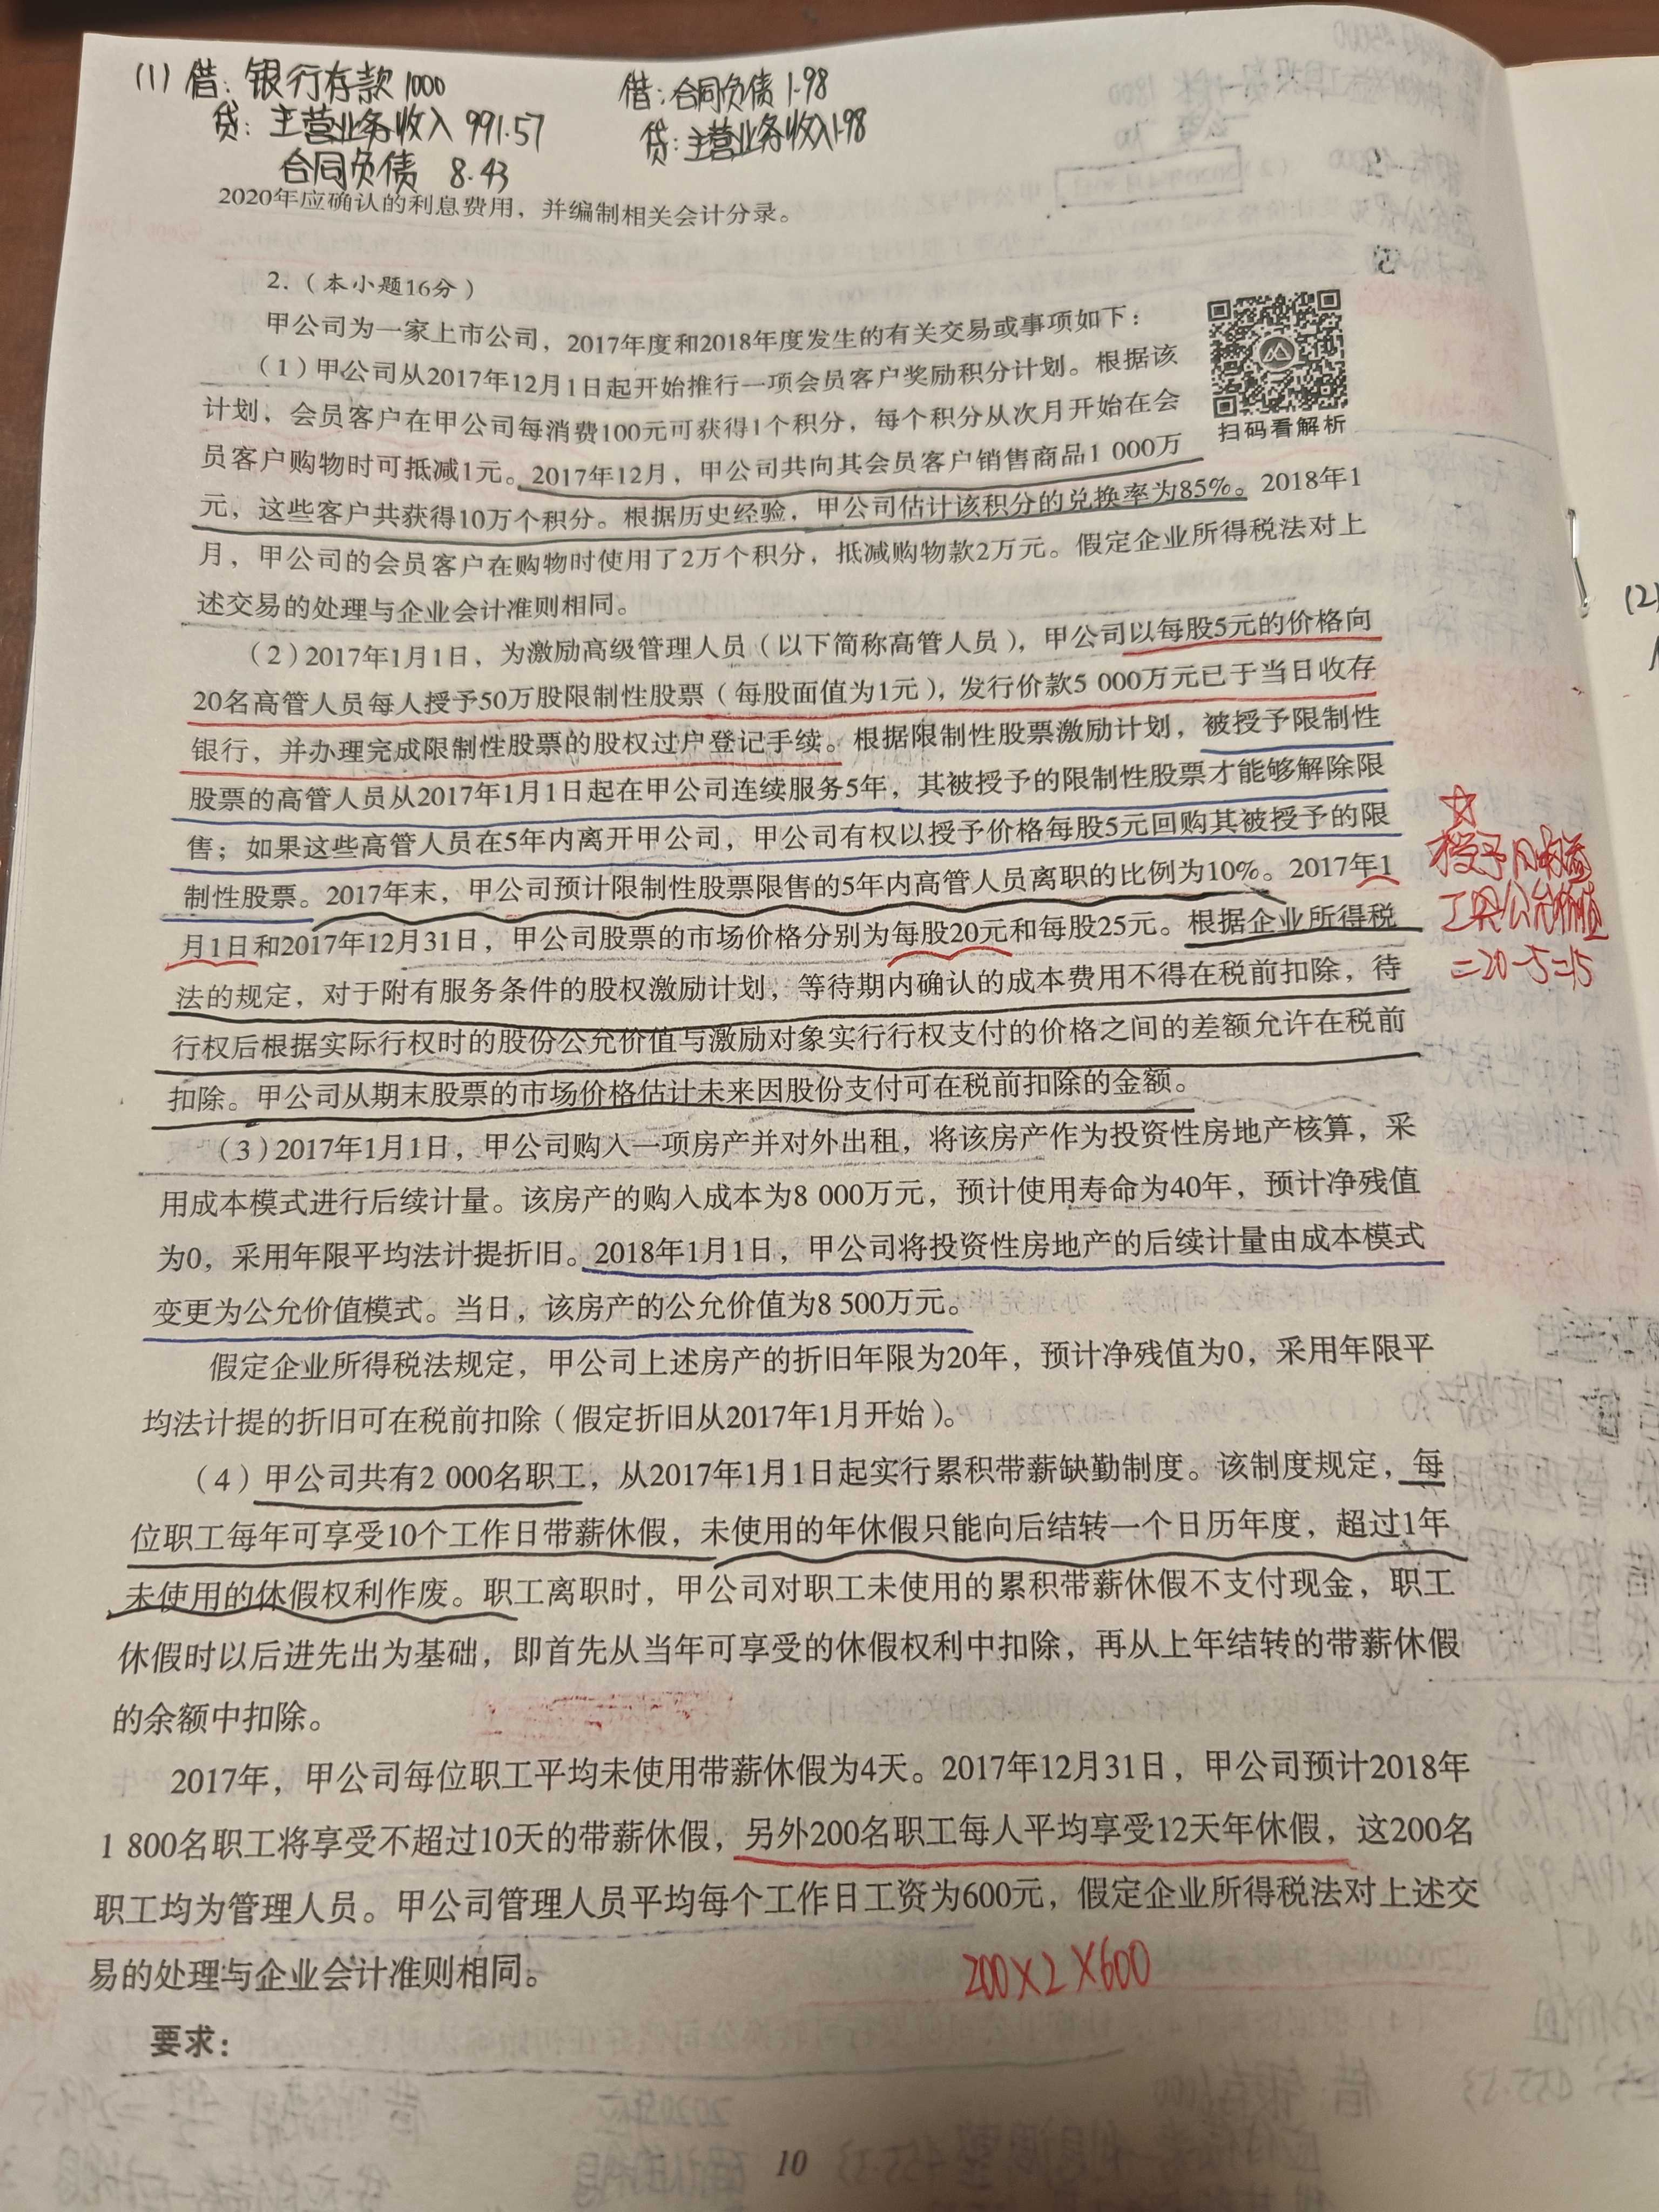 (1) 借: 银行存款 1000
贷: 主营业务收入 991.57
合同负债 8.43
借: 合同负债 1.98
贷: 主营业务收入 1.98
2020年应确认的利息费用，并编制相关会计分录。
2.（本小题16分）
甲公司为一家上市公司，2017年度和2018年度发生的有关交易或事项如下：
（1）甲公司从2017年12月1日起开始推行一项会员客户奖励积分计划。根据该
计划，会员客户在甲公司每消费100元可获得1个积分，每个积分从次月开始在会
员客户购物时可抵减1元。2017年12月，甲公司共向其会员客户销售商品1 000万
元，这些客户共获得10万个积分。根据历史经验，甲公司估计该积分的兑换率为85%。2018年1
月，甲公司的会员客户在购物时使用了2万个积分，抵减购物款2万元。假定企业所得税法对上
述交易的处理与企业会计准则相同。
扫码看解析
（2）2017年1月1日，为激励高级管理人员（以下简称高管人员），甲公司以每股5元的价格向
20名高管人员每人授予50万股限制性股票（每股面值为1元），发行价款5 000万元已于当日收存
银行，并办理完成限制性股票的股权过户登记手续。根据限制性股票激励计划，被授予限制性
股票的高管人员从2017年1月1日起在甲公司连续服务5年，其被授予的限制性股票才能够解除限
售；如果这些高管人员在5年内离开甲公司，甲公司有权以授予价格每股5元回购其被授予的限
制性股票。2017年末，甲公司预计限制性股票限售的5年内高管人员离职的比例为10%。2017年1
月1日和2017年12月31日，甲公司股票的市场价格分别为每股20元和每股25元。根据企业所得税
法的规定，对于附有服务条件的股权激励计划，等待期内确认的成本费用不得在税前扣除，待
行权后根据实际行权时的股份公允价值与激励对象实行行权支付的价格之间的差额允许在税前
扣除。甲公司从期末股票的市场价格估计未来因股份支付可在税前扣除的金额。
☆
授予日权益
工具公允价值
=20-5=15
（3）2017年1月1日，甲公司购入一项房产并对外出租，将该房产作为投资性房地产核算，采
用成本模式进行后续计量。该房产的购入成本为8 000万元，预计使用寿命为40年，预计净残值
为0，采用年限平均法计提折旧。2018年1月1日，甲公司将投资性房地产的后续计量由成本模式
变更为公允价值模式。当日，该房产的公允价值为8 500万元。
假定企业所得税法规定，甲公司上述房产的折旧年限为20年，预计净残值为0，采用年限平
均法计提的折旧可在税前扣除（假定折旧从2017年1月开始）。
（4）甲公司共有2 000名职工，从2017年1月1日起实行累积带薪缺勤制度。该制度规定，每
位职工每年可享受10个工作日带薪休假，未使用的年休假只能向后结转一个日历年度，超过1年
未使用的休假权利作废。职工离职时，甲公司对职工未使用的累积带薪休假不支付现金，职工
休假时以后进先出为基础，即首先从当年可享受的休假权利中扣除，再从上年结转的带薪休假
的余额中扣除。
2017年，甲公司每位职工平均未使用带薪休假为4天。2017年12月31日，甲公司预计2018年
1 800名职工将享受不超过10天的带薪休假，另外200名职工每人平均享受12天年休假，这200名
职工均为管理人员。甲公司管理人员平均每个工作日工资为600元，假定企业所得税法对上述交
易的处理与企业会计准则相同。
200×2×600
要求：
10
(2)